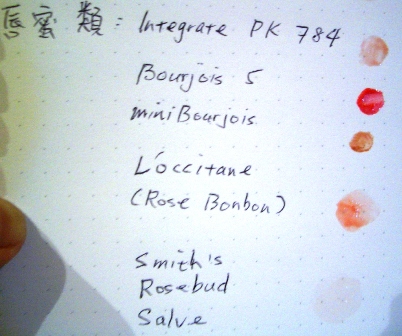 唇蜜類：Integrate PK 784
Bourjois 5
miniBourjois
L'occitane
(Rose Bonbon)
Smith's
Rosebud
Salve